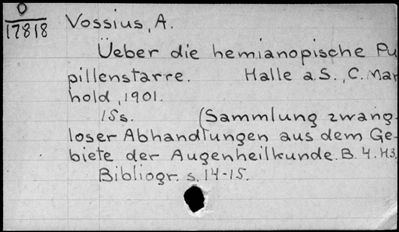 O
17818
Vossius, A.
Ueber die hemianopische Pu
pillenstarre. Halle a.S., C. Mar
hold, 1901.
15s. (Sammlung zwang-
loser Abhandlungen aus dem Ge-
biete der Augenheilkunde. B. 4. H3.
Bibliogr. s. 14-15.